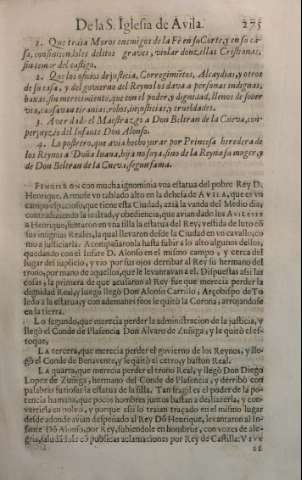 De la S. Iglesia de Avila. 275
1. Que traìa Moros enemigos de la Fè en su Corte, y en su ca-
sa, consintiendoles delitos graves, violar donzellas Cristianas,
sin temor del castigo.
2. Que los oficios de justicia, Corregimiẽtos, Alcaydias, y otros
de su casa, y del govierno del Reyno los dava a personas indignas,
baxas, sin merecimiento, que con el poder, y dignidad, llenos de sober
via, causavan tiranias, robos, injusticias, y crueldades.
3. Aver dado el Maestrazgo a Don Beltran de la Cueva, con
perjuyzio del Infante Don Alonso.
4. Lo postrero, que avia hecho jurar por Princesa heredera de
los Reynos a Doña Iuana, hija no suya, sino de la Reyna su muger, y
de Don Beltran de la Cueva, segun fama.
con mucha ignominia vna estatua del pobre Rey D.
Henrique. Armose vn tablado alto en la dehesa de AVILA, que es vn
campo espacioso, que tiene esta Ciudad, azia la vanda del Medio dia,
contradiziendo la lealtad, y obediencia, que avian dado los AVILESES
a Henrique, sentaron en vna silla la estatua del Rey, vestida de luto cõ
sus insignias Reales, la qual llevaron desde la Ciudad en vn cavallo, co
mo a justiciarla: Acompañaronla hasta subir a lo alto algunos dellos,
quedando con el Infante D. Alonso en el mismo campo, y cerca del
lugar del suplicio, y vio por sus ojos derribar al Rey su hermano del
trono, por mano de aquellos, que le levantavan a el. Dispuestas assi las
cosas, la primera de que acusaron al Rey fue que merecia perder la
dignidad Real, y luego llegò Don Alonso Carrillo, Arçobispo de To
ledo a la estatua, y con ademanes feos le quitò la Corona, arrojandose
en la tierra.
Lo segundo, que merecia perder la administracion de la justicia, y
llegò el Conde de Plasencia Don Alvaro de Zuñiga, y le quitò el es-
toque,
La tercera, que merecia perder el govierno de los Reynos, y lle-
gò el Conde de Benavente, y le quitò el cetro, y baston Real.
La quarta, que merecia perder el trono Real, y llegò Don Diego
Lopez de Zuñiga, hermano del Conde de Plasencia, y derribò con
palabras furiosas la estatua de la silla. Tan fragil es el poder de la po-
tencia humana, que pocos hombres juntos bastan a deshazerla, y con-
vertirla en polvo, y porque assi lo traìan traçado en el mismo lugar
desde adonde avian despeñado al Rey Dõ Henrique, levantaron al In-
fante Dõ Alonso, por Rey, subiendole en hombros, y con vozes de ale-
gria, saludãdole cõ publicas aclamaciones por Rey de Castilla: VIVA